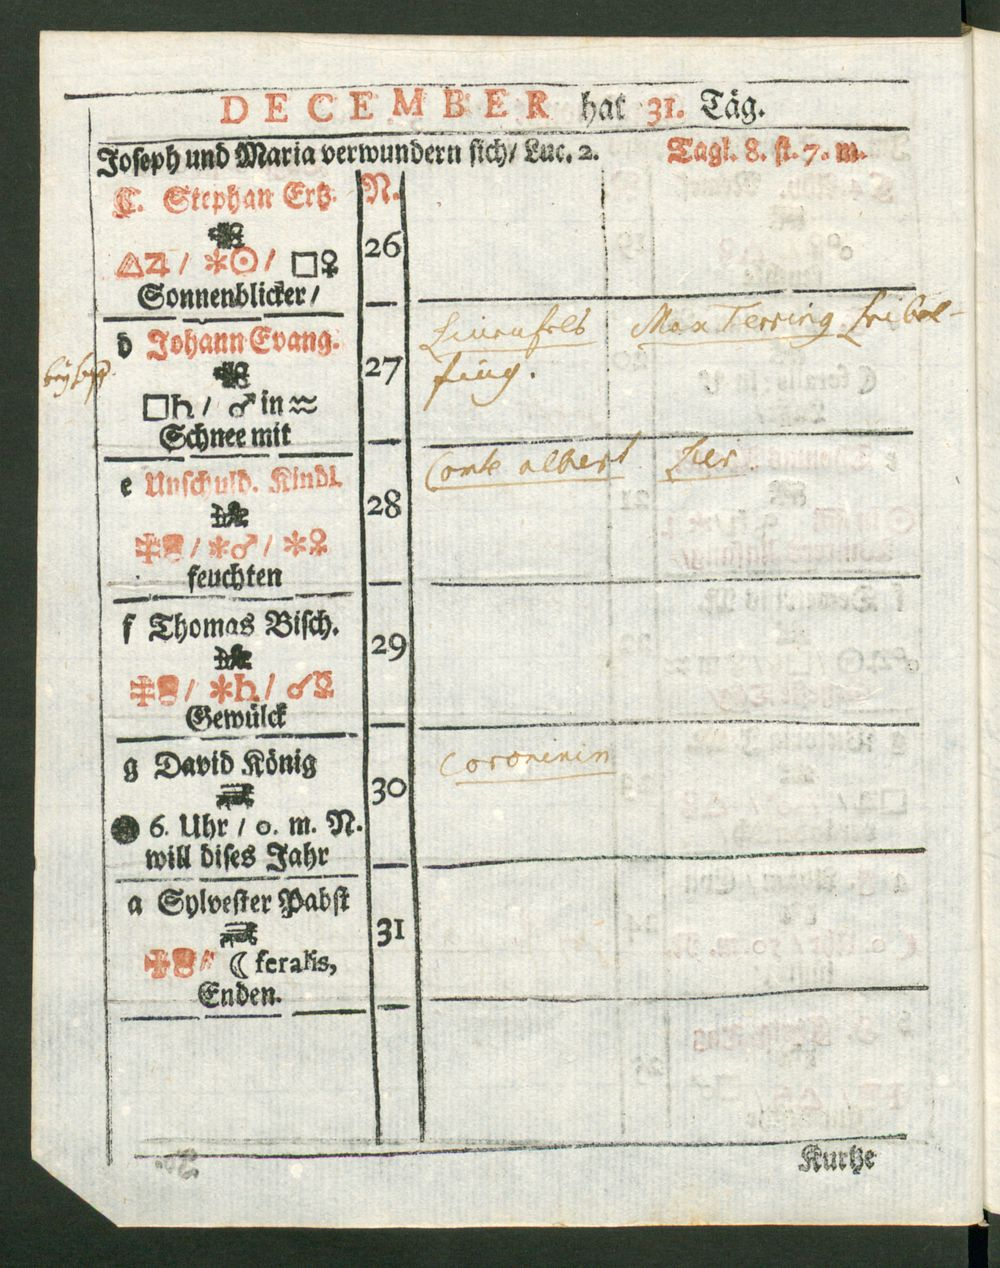 DECEMBER hat 31. Täg.
Joseph und Maria verwundern sich/ Luc. 2. Tagl. 8. st. 7. m.
C. Stephan Ertz. N.
△♃ / ⚹☉ / □♀ 26
Sonnenblicker /
d Johann Evang.
□♄ / ♂ in ♒ 27
Schnee mit
Max Terring
e Unschuld. Kindl.
/ ⚹♂ / ⚹♀ 28
feuchten
Conte albert
f Thomas Bisch.
/ ⚹♄ / ☌☿ 29
Gewülck
g David König
6. Uhr / 0. m. N. 30
will dises Jahr
Coroninin
a Sylvester Pabst
☾ feralis, 31
Enden.
Kurtze